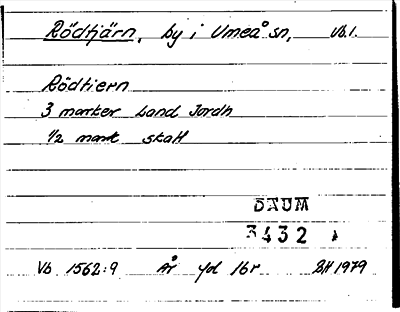 Rödtjärn, by i Umeå sn, Vb.l.
Rödtiern
3 marker Land Jordh
1/2 mark skatt
DAUM
3432
Vb 1562:9 År fol 16r BH 1979